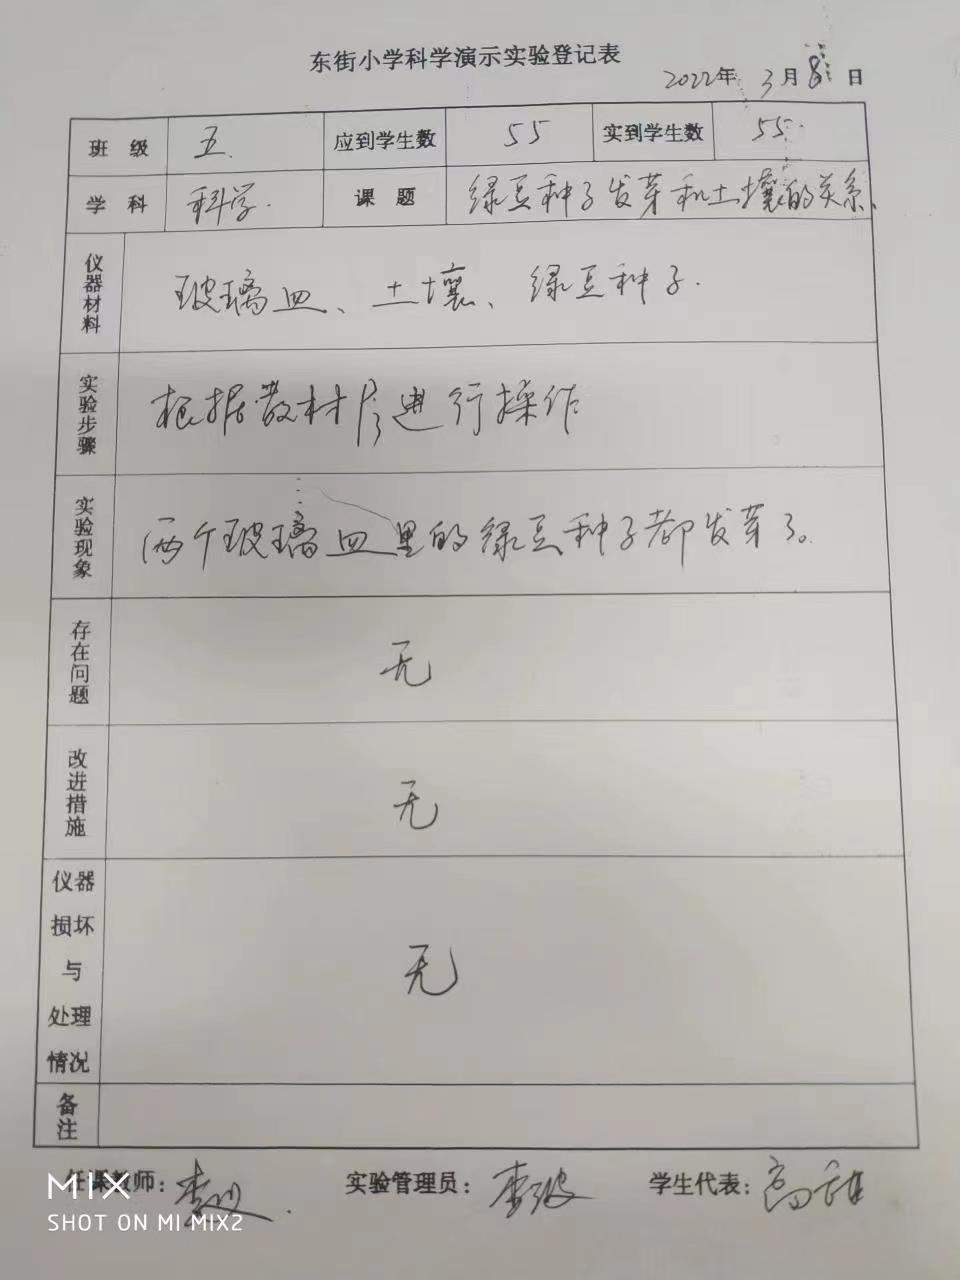 东街小学科学演示实验登记表
2022年 3月 8日
班 级 五. 应到学生数 55 实到学生数 55.
学 科 科学. 课 题 绿豆种子发芽和土壤的关系.
仪器材料 玻璃皿、土壤、绿豆种子.
实验步骤 根据教材P3进行操作
实验现象 两个玻璃皿里的绿豆种子都发芽了。
存在问题 无
改进措施 无
仪器
损坏
与
处理
情况
无
备注
任课教师:
实验管理员: 李波
学生代表: 高甜
MIX
SHOT ON MI MIX2